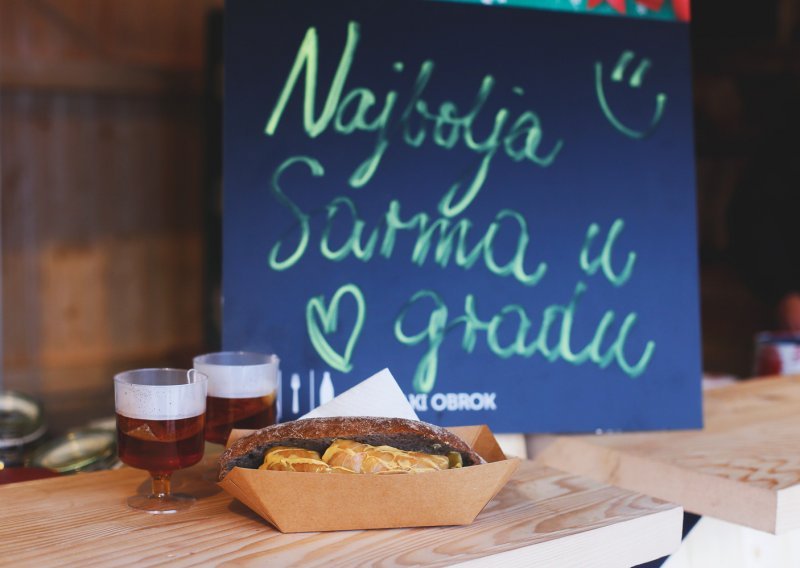 Najbolja
Sarma u
gradu
KI OBROK